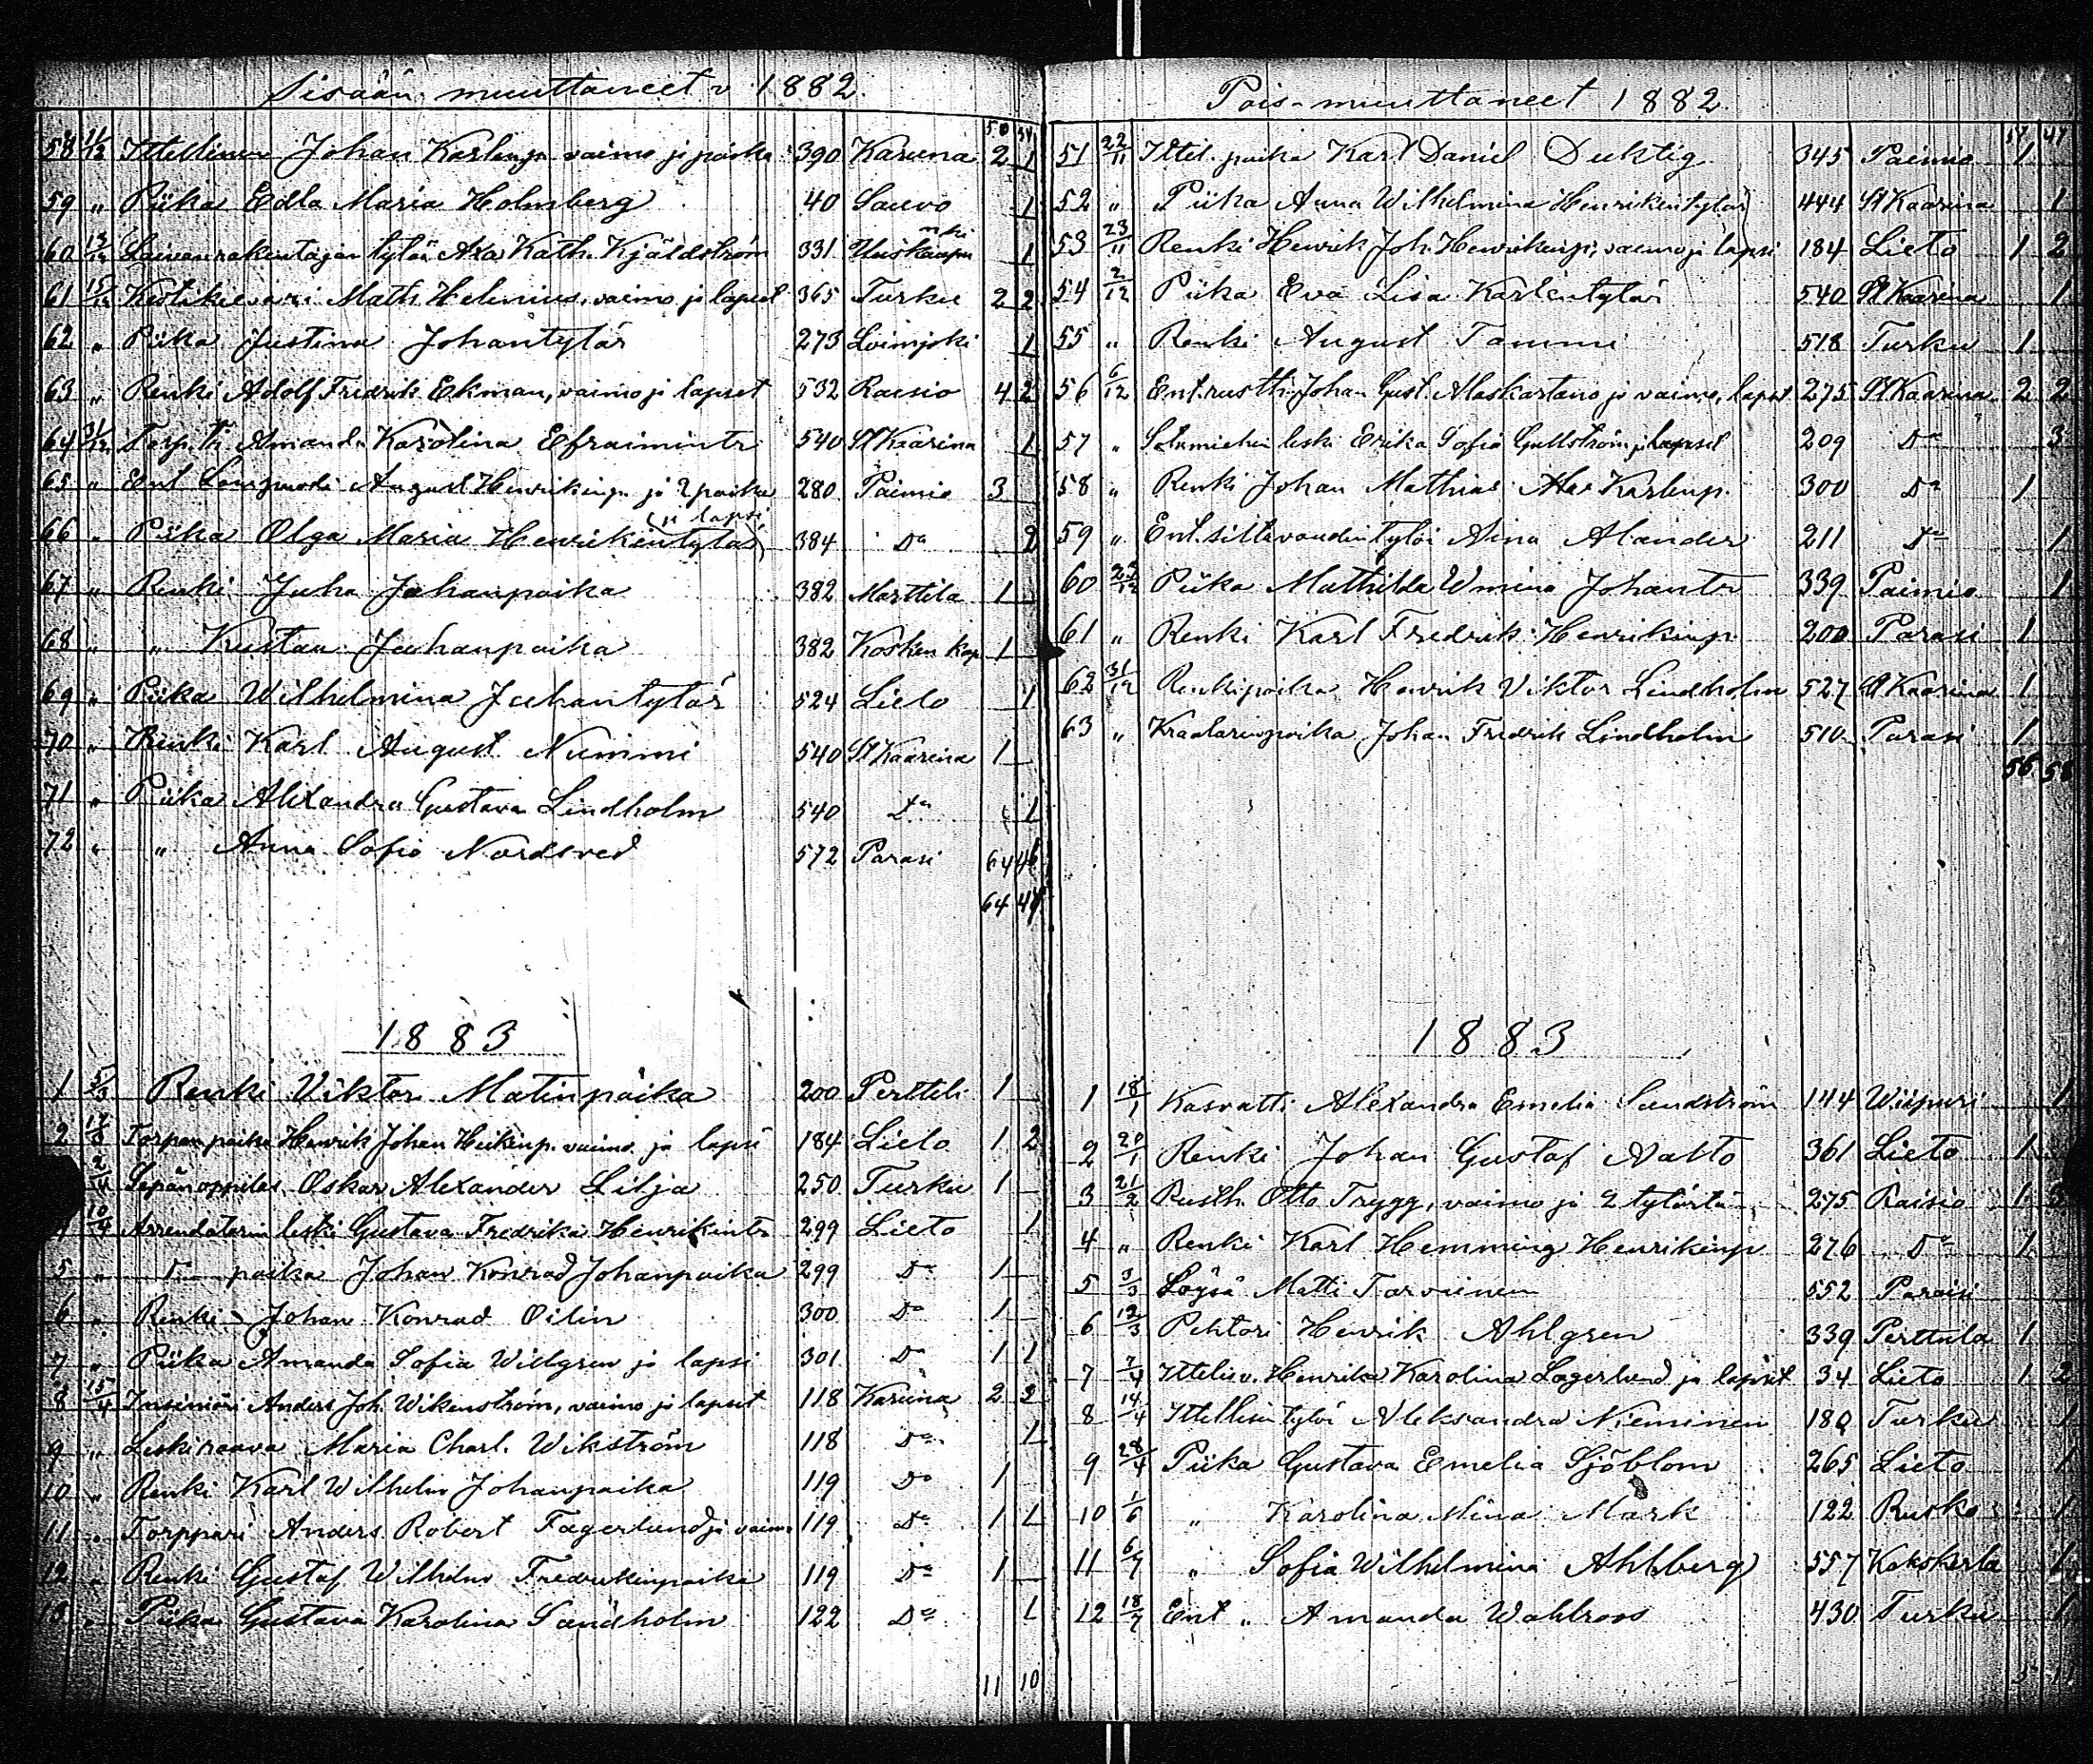 Sisään muuttaneet v. 1882.
50 34
58 11/12 Ittellinen Johan Karlenp. vaimo ja poika 390 Karuna 2 1
59 " Piika Edla Maria Holmberg 40 Sauvo 1
60 13/12 Laivanrakentajan tytön Axa Kath. Kjäldström 331 1
61 15/12 Kestikievari Math. Helenius, vaimo ja lapset 365 Turku 2 2
62 " Piika Justina Johantytär 273 Loimjoki 1
63 " Renki Adolf Fredrik Ekman, vaimo ja lapset 532 Raisio 4 2
64 31/12 Torp. tr. Amanda Karolina Efraimintr 540 St Kaarina 1
65 " Ent August Henrikinp. ja 2 poika 280 Paimio 3
66 " Piika Olga Maria Henrikintytär (ja lapsi) 384 Do 2
67 " Renki Juha Juhanpoika 382 Marttila 1
68 " " Kustaa Juhanpoika 382 Kosken kap 1
69 " Piika Wilhelmina Juhantytär 524 Lieto 1
70 " Renki Karl August Nummi 540 St Kaarina 1
71 " Piika Alexandra Gustava Lindholm 540 Do 1
72 " " Anna Sofia Nordsved 572 Parasi 64 46
64 47
1883
1 5/3 Renki Viktor Matinpoika 200 Pertteli 1
2 17/3 Torpan poika Henrik Johan Heikinp. vaimo ja lapsi 184 Lieto 1 2
2/4 Sepänoppilas Oskar Alexander Lilja 250 Turku 1
10/4 Arrendatorin leski Gustava Fredrika Henrikintr 299 Lieto 1
5 " Do poika Johan Konrad Johanpoika 299 Do 1
6 " Renki Johan Konrad Oilin 300 Do 1
7 " Piika Amanda Sofia Willgren ja lapsi 301 Do 1 1
8 15/4 Insiniöri Anders Joh. Wikenström, vaimo ja lapset 118 Karuna 2 3
9 " Leskirouva Maria Charl. Wikström 118 Do 1
10 " Renki Karl Wilhelm Johanpoika 119 Do 1
11 " Torppari Anders Robert Fagerlund ja vaimo 119 Do 1 1
12 " Renki Gustaf Wilhelm Fredrikinpoika 119 Do 1
13 " Piika Gustava Karolina Sandholm 122 Do 1
11 10
Pois-muuttaneet 1882
51 47
51 22/11 Ittel. poika Karl Daniel Duktig 345 Paimio 1
52 " Piika Anna Wilhelmina Henrikintytär 444 St Kaarina 1
53 23/11 Renki Henrik Joh. Henrikinp., vaimo ja lapsi 184 Lieto 1 2
54 2/12 Piika Eva Lisa Karlentytär 540 St Kaarina 1
55 " Renki August Tammi 518 Turku 1
56 6/12 Ent. rusth. Johan Gust. Alaskartano ja vaimo, lapset 275 St Kaarina 2 2
57 " Sotamiehen leski Erika Sofia Gullström ja lapset 209 Do 3
58 " Renki Johan Mathias Karlenp. 300 Do 1
59 " Ent. siltavoudin tytön Aina Alander 211 Do 1
60 23/12 Piika Mathilda Wmina Johantr 339 Paimio 1
61 " Renki Karl Fredrik Henrikinp. 200 Parasi 1
62 31/12 Renkipoika Henrik Viktor Lindholm 527 St Kaarina 1
63 " Kraatarinpoika Johan Fredrik Lindholm 510 Parasi 1
56 58
1883
1 18/1 Kasvatti Alexandra Emelia Sundström 144 Wiipuri 1
2 20/1 Renki Johan Gustaf Aalto 361 Lieto 1
3 21/2 Rusth. Otto Trygg, vaimo ja 2 tytärtä 275 Raisio 1 3
4 " Renki Karl Hemming Henrikinp 276 Do 1
5 3/3 Löysä Matti Tarviinen 552 Paraisi
6 12/3 Pehtori Henrik Ahlgren 339 Perttula 1
7 7/4 Ittelisn. Henrika Karolina Lagerlund ja lapset 34 Lieto 1 2
8 14/4 Ittellisen tytön Aleksandra Nieminen 180 Turku 1
9 28/4 Piika Gustava Emelia Sjöblom 265 Lieto 1
10 1/6 " Karolina Mina Mark 122 Rusko 1
11 6/7 " Sofia Wilhelmina Ahlberg 557 Kakskerta 1
12 18/7 Ent " Amanda Wahlroos 430 Turku 1
5 11